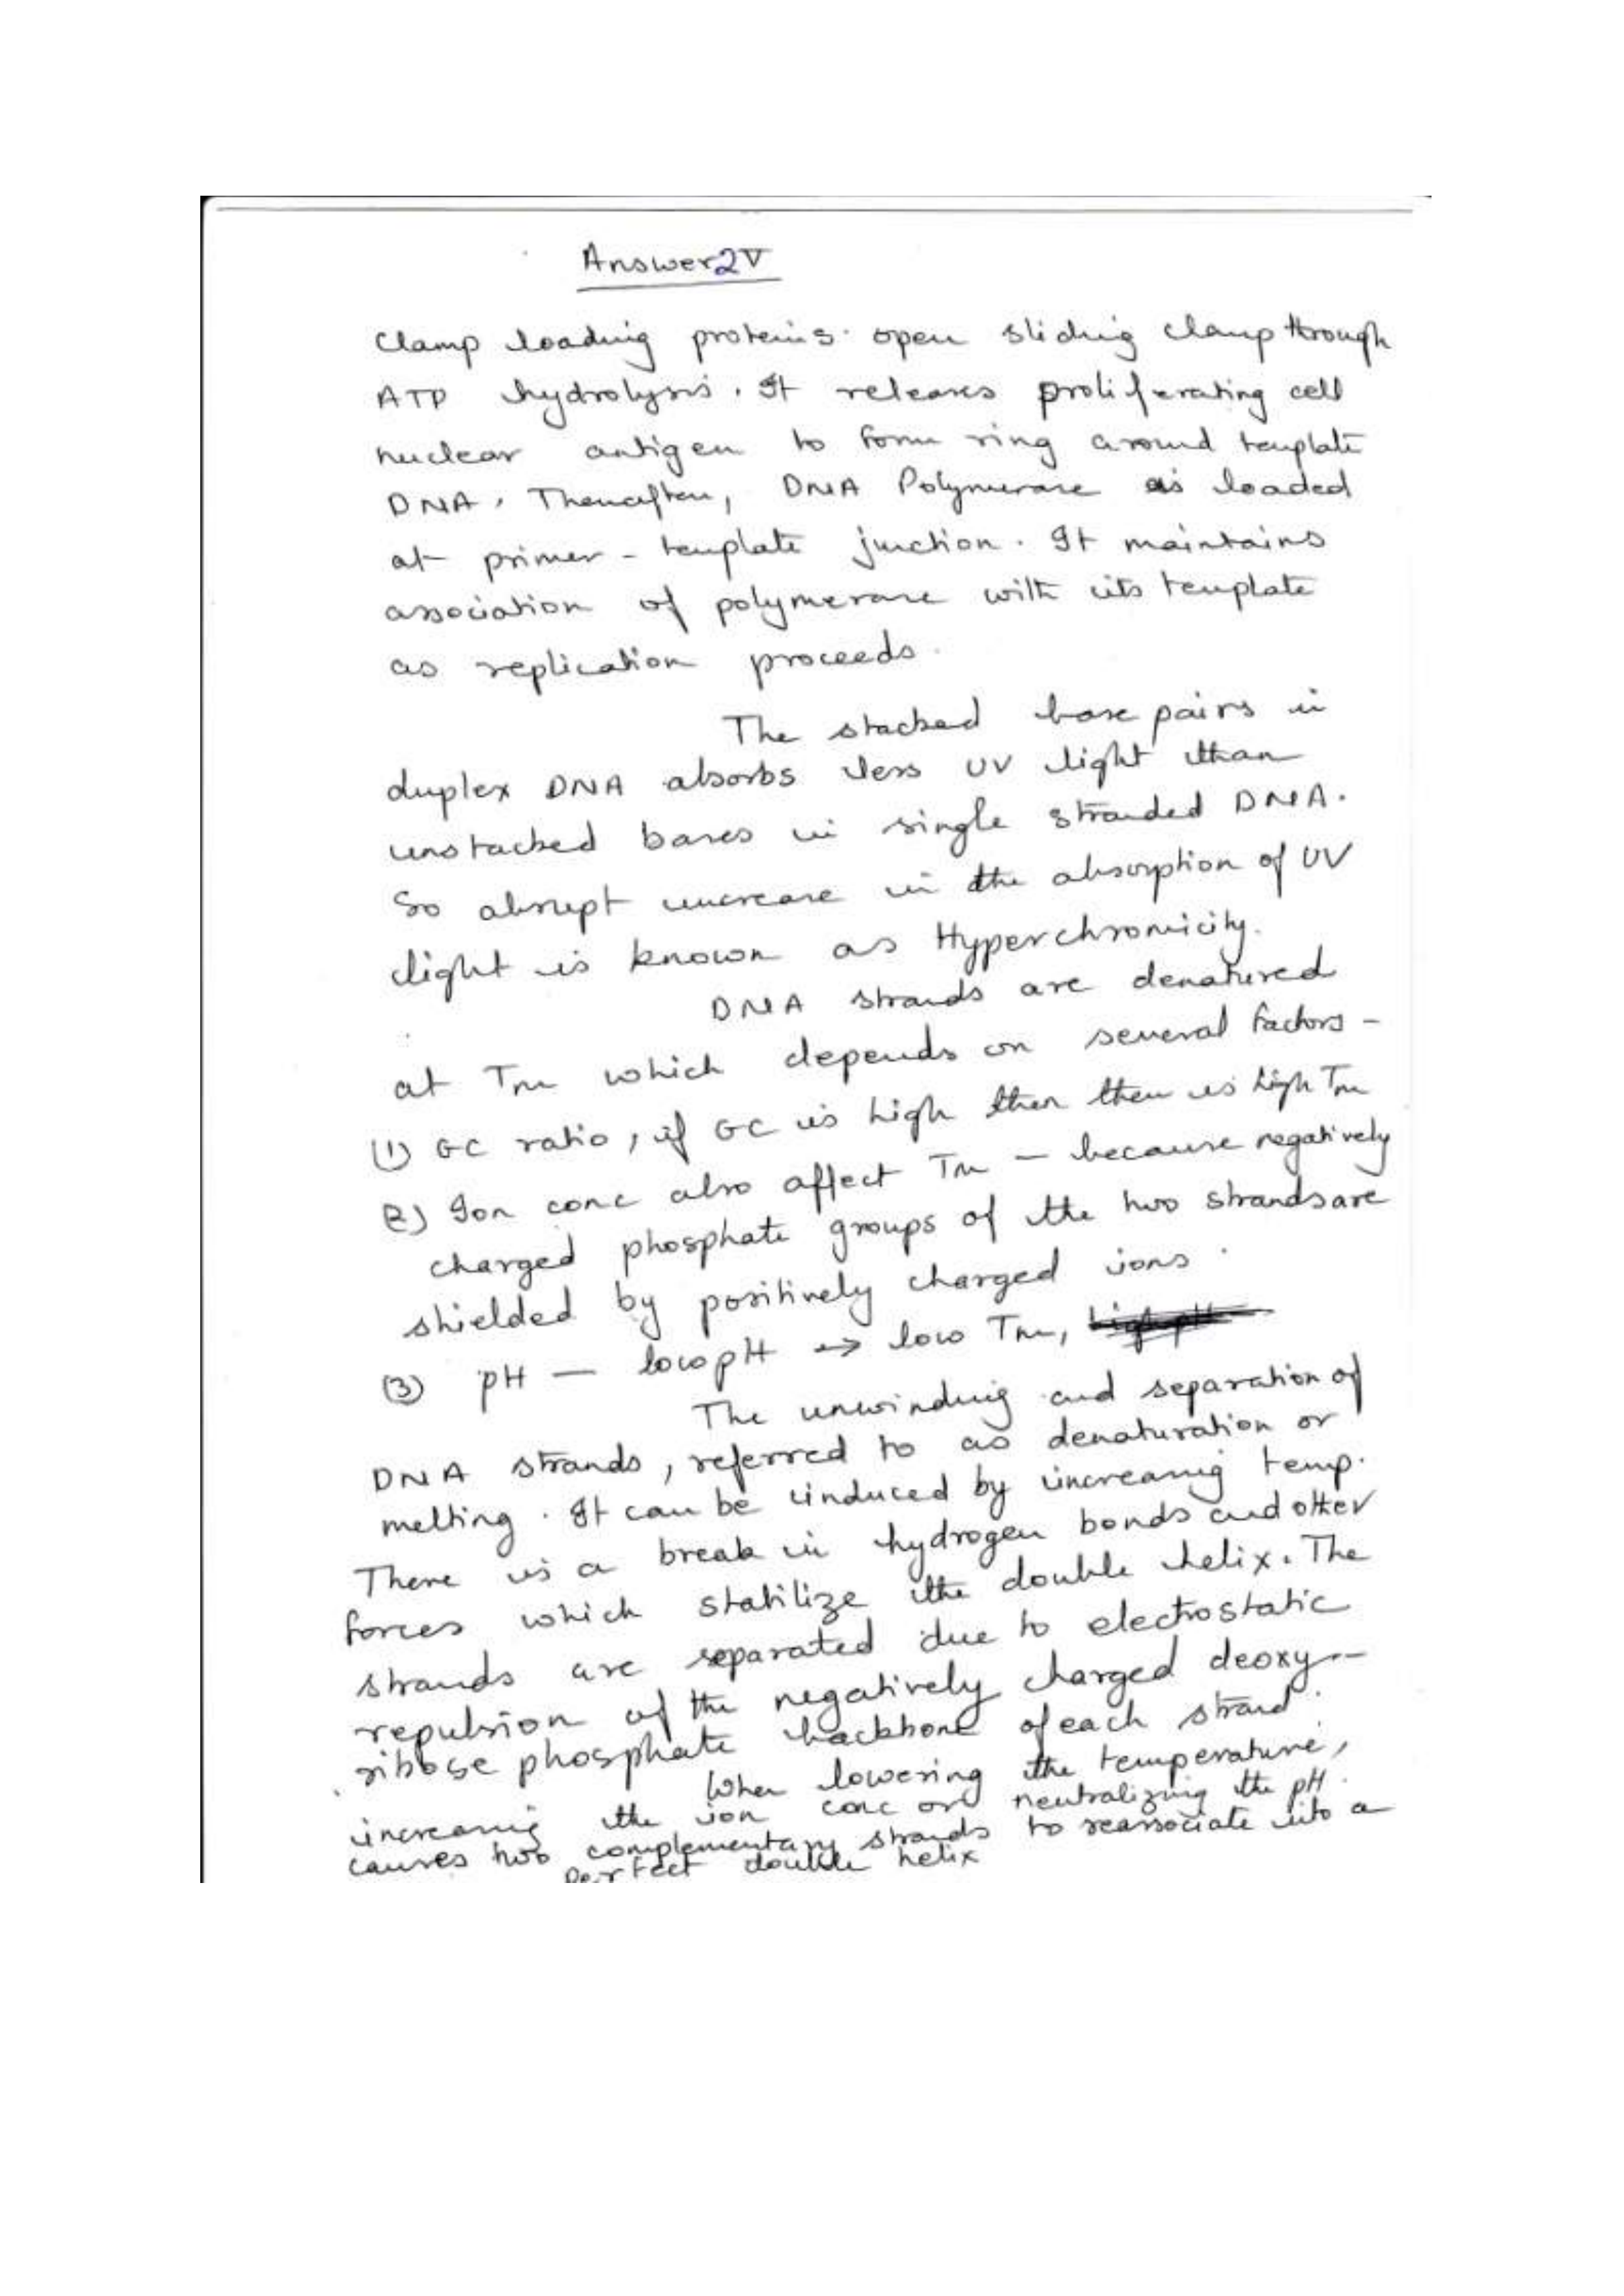 Answer 2V
Clamp loading proteins open sliding clamp through
ATP hydrolysis. It releases proliferating cell
nuclear antigen to form ring around template
DNA. Thereafter, DNA Polymerase is loaded
at primer - template junction. It maintains
association of polymerase with its template
as replication proceeds.
The stacked base pairs in
duplex DNA absorbs less UV light than
unstacked bases in single stranded DNA.
So abrupt increase in the absorption of UV
light is known as Hyperchromicity.
DNA strands are denatured
at Tm which depends on several factors -
(1) GC ratio, if GC is high then then is high Tm
(2) Ion conc also affect Tm - because negatively
charged phosphate groups of the two strands are
shielded by positively charged ions.
(3) pH - low pH → low Tm,
The unwinding and separation of
DNA strands, referred to as denaturation or
melting. It can be induced by increasing temp.
There is a break in hydrogen bonds and other
forces which stabilize the double helix. The
strands are separated due to electrostatic
repulsion of the negatively charged deoxy--
ribose phosphate backbone of each strand.
When lowering the temperature,
increasing the ion conc or neutralizing the pH.
causes two complementary strands to reassociate into a
perfect double helix